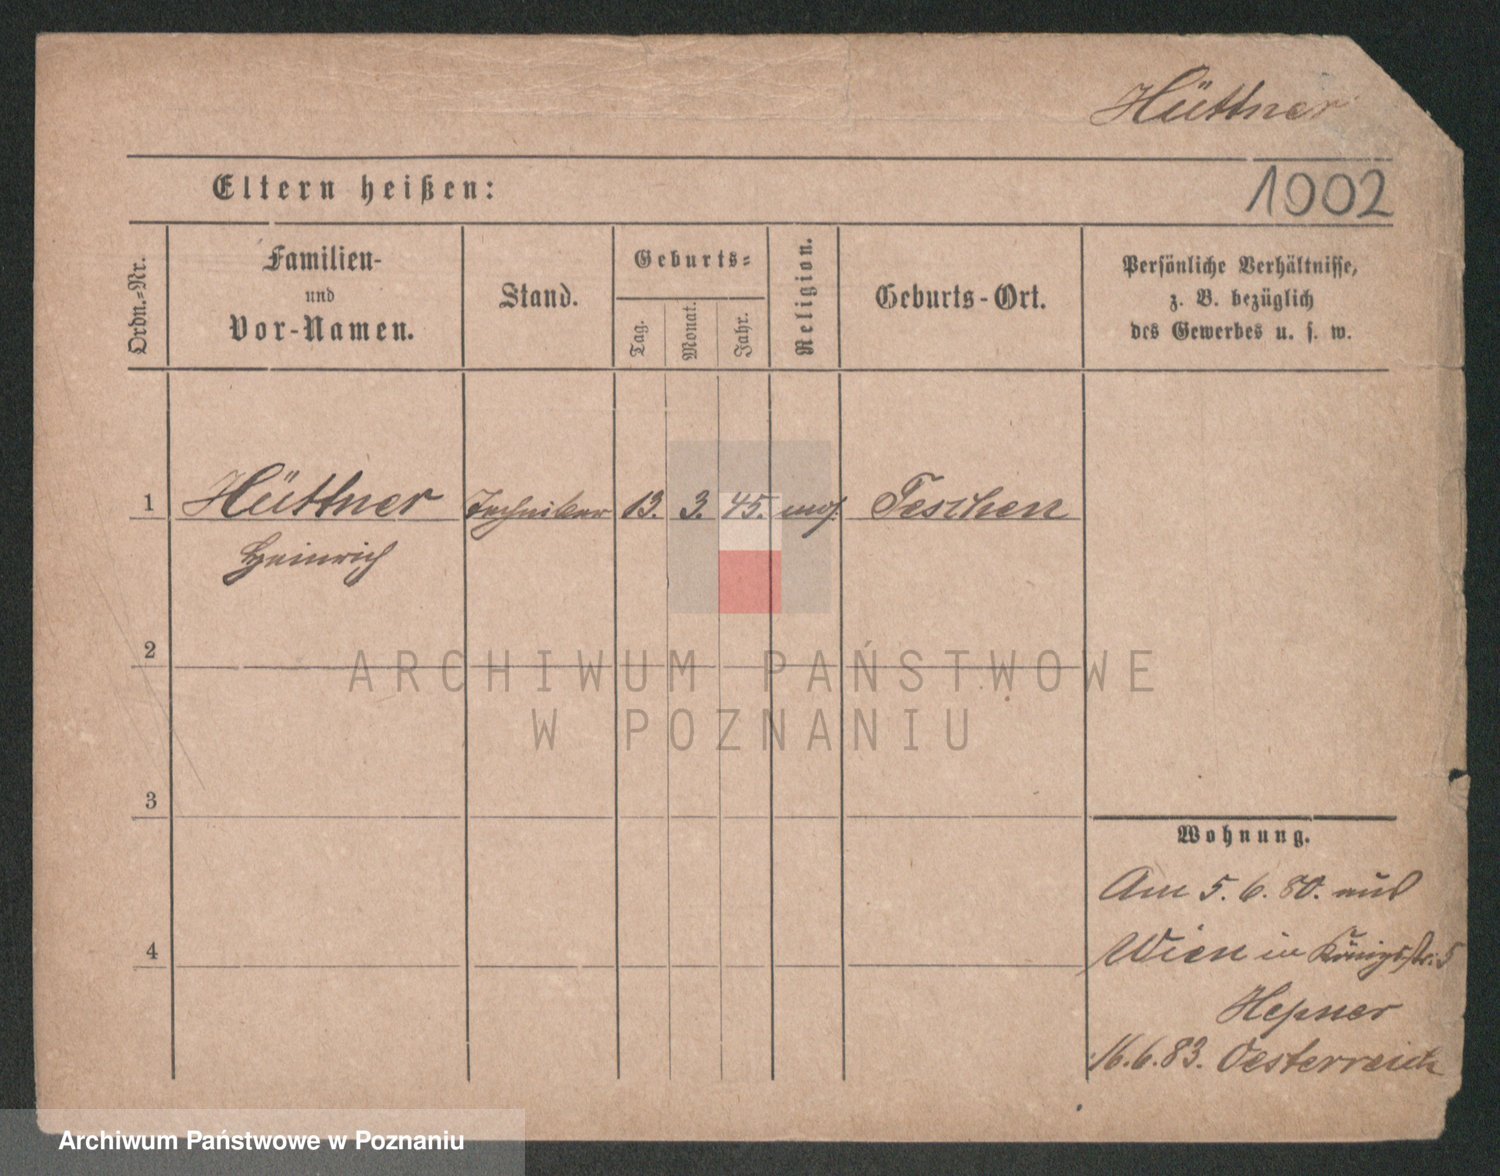 Hüttner
Eltern heißen:
1002
Ordn.-Nr.
Familien-
und
Vor-Namen.
Stand.
Geburts-
Tag.
Monat.
Jahr.
Religion.
Geburts-Ort.
Persönliche Verhältnisse,
z. B. bezüglich
des Gewerbes u. s. w.
1 Hüttner Techniker 13. 3. 45. mos. Teschen
Heinrich
2
ARCHIWUM PAŃSTWOWE
W POZNANIU
3
Wohnung.
Am 5. 6. 80. aus
4
Wien in Königsstr. 5
Hepner
16.6.83. Oesterreich
Archiwum Państwowe w Poznaniu